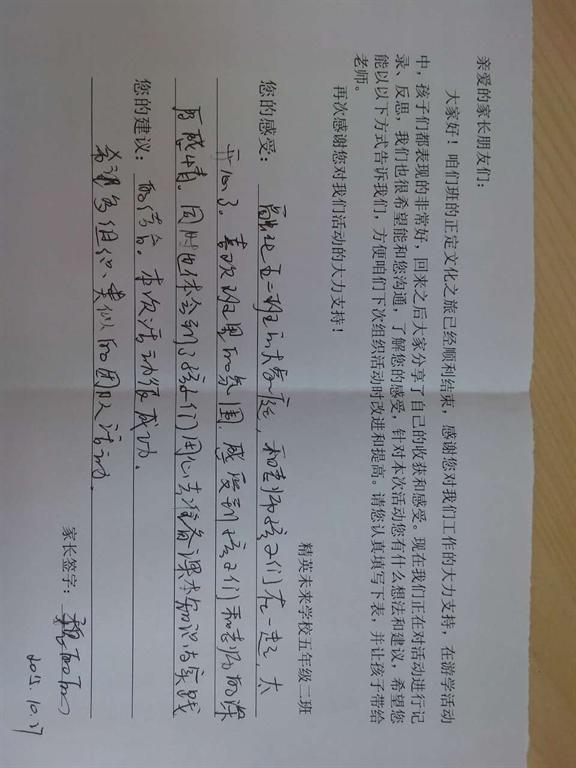 亲爱的家长朋友们：
大家好！咱们班的正定文化之旅已经顺利结束，感谢您对我们工作的大力支持，在游学活动
中，孩子们都表现的非常好，回来之后大家分享了自己的收获和感受。现在我们正在对活动进行记
录、反思，我们也很希望能和您沟通，了解您的感受，针对本次活动您有什么想法和建议，希望您
能以以下方式告诉我们，方便咱们下次组织活动时改进和提高。请您认真填写下表，并让孩子带给
老师。
再次感谢您对我们活动的大力支持！
精英未来学校五年级二班
您的感受：融他五二班的大家庭，和老师孩子们在一起，太
开心了。喜欢班里的氛围，感受到孩子们和老师的深
厚感情。同时也体会到了孩子们用心去准备课本知识与实践
您的建议：的结合。本次活动很成功。
希望多组织类似的团队活动。
家长签字：
2015.10.27